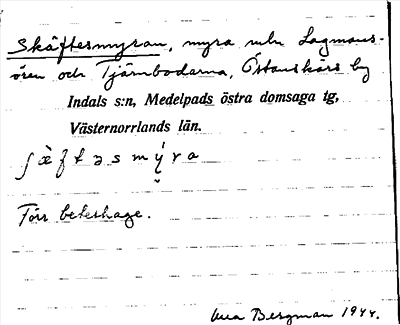 Skäftesmyran, myra mln Lagmans-
ören och Tjärnbodarna, Östanskärs by
Indals s:n, Medelpads östra domsaga tg,
Västernorrlands län.
ʃæ̀ftəsmýra
Förr beteshage.
Bergman 1944.